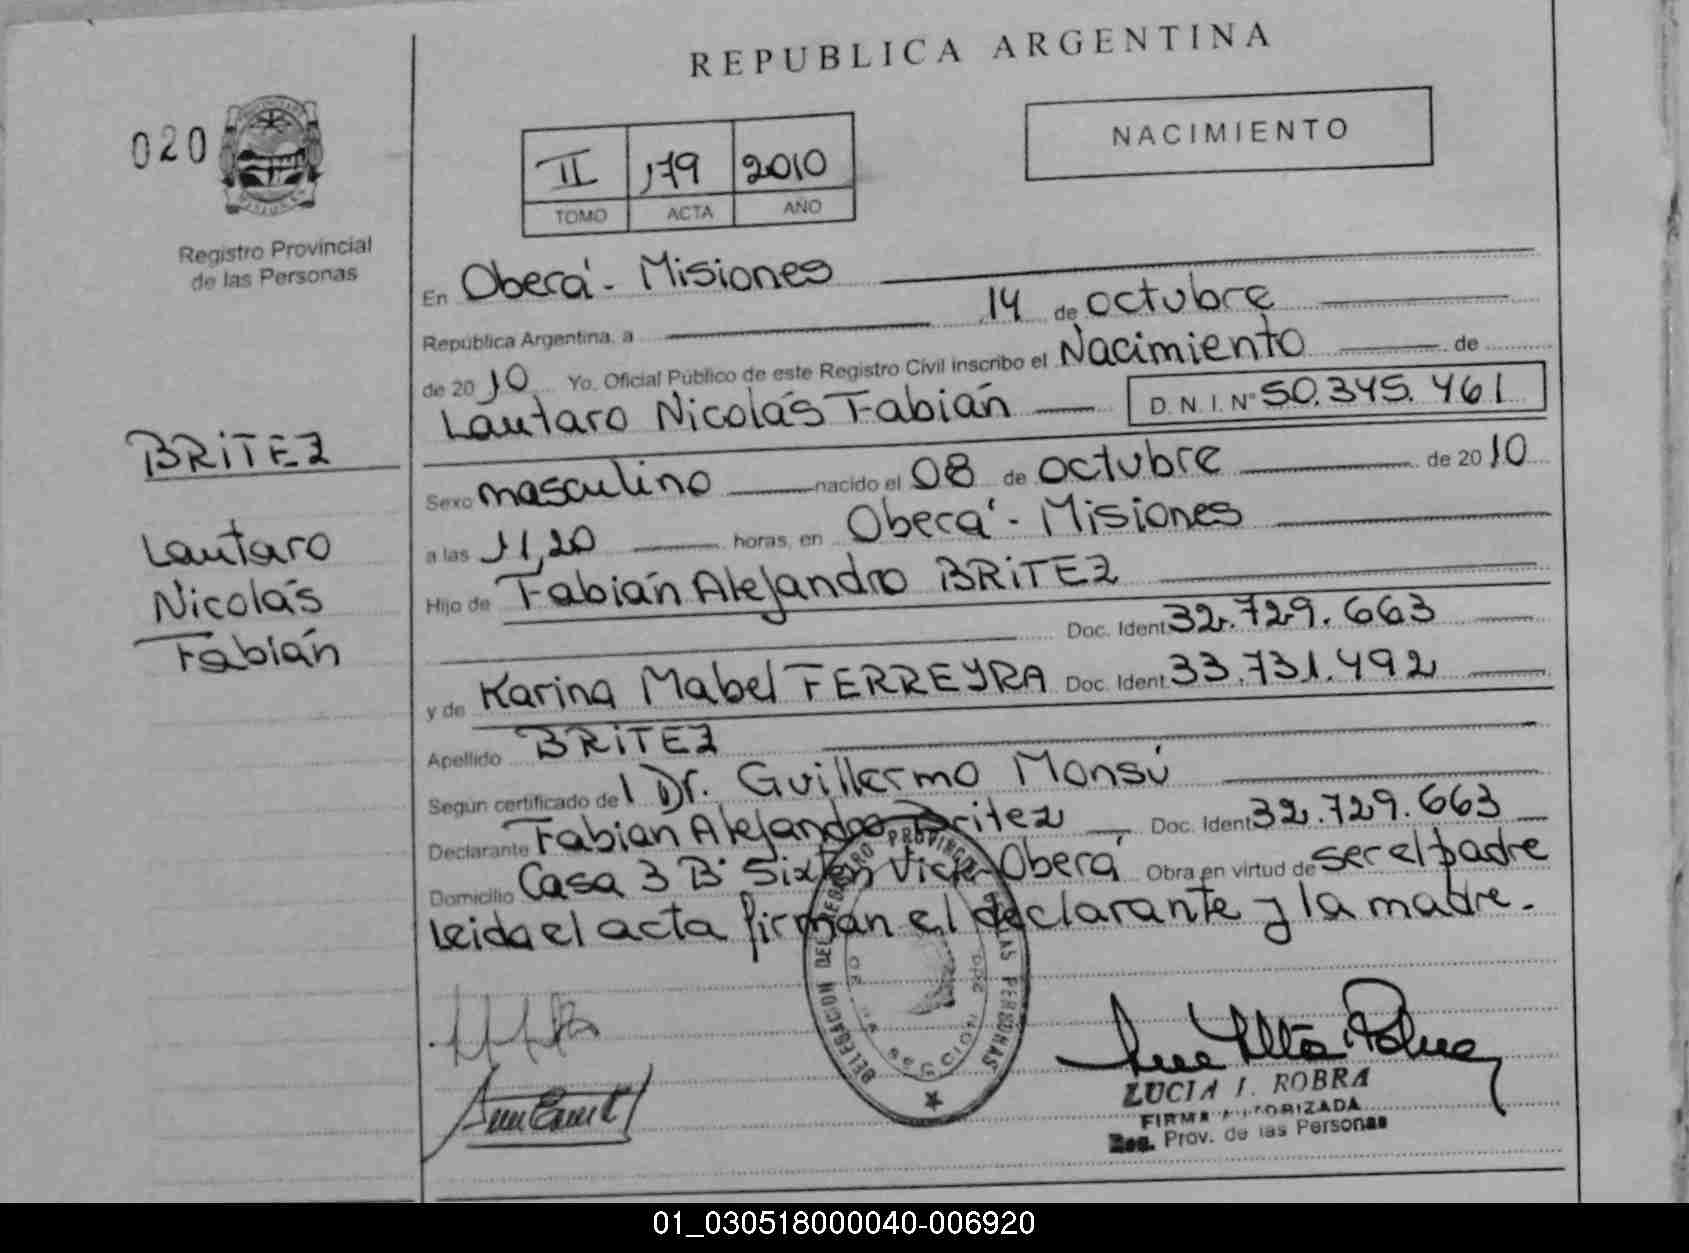 REPUBLICA ARGENTINA
020
II 179 2010
TOMO ACTA AÑO
NACIMIENTO
Registro Provincial
de las Personas
BRITEZ
Lautaro
Nicolás
Fabián
En Oberá - Misiones
República Argentina, a 14 de octubre
de 2010 Yo, Oficial Público de este Registro Civil inscribo el Nacimiento de
Lautaro Nicolás Fabián D.N.I. N° 50.345.461
Sexo masculino nacido el 08 de octubre de 2010
a las 11,20 horas, en Oberá - Misiones
Hijo de Fabián Alejandro BRITEZ
Doc. Ident. 32.729.663
y de Karina Mabel FERREYRA Doc. Ident. 33.731.492
Apellido BRITEZ
Según certificado del Dr. Guillermo Monsú
Declarante Fabian Alejandro Britez Doc. Ident. 32.729.663
Domicilio Casa 3 B° Oberá Obra en virtud de ser el padre
leida el acta firman el declarante y la madre.
DELEGACION DEL REGISTRO PROVINCIAL DE LAS PERSONAS
LUCIA I. ROBRA
FIRMA AUTORIZADA
Reg. Prov. de las Personas
01_030518000040-006920